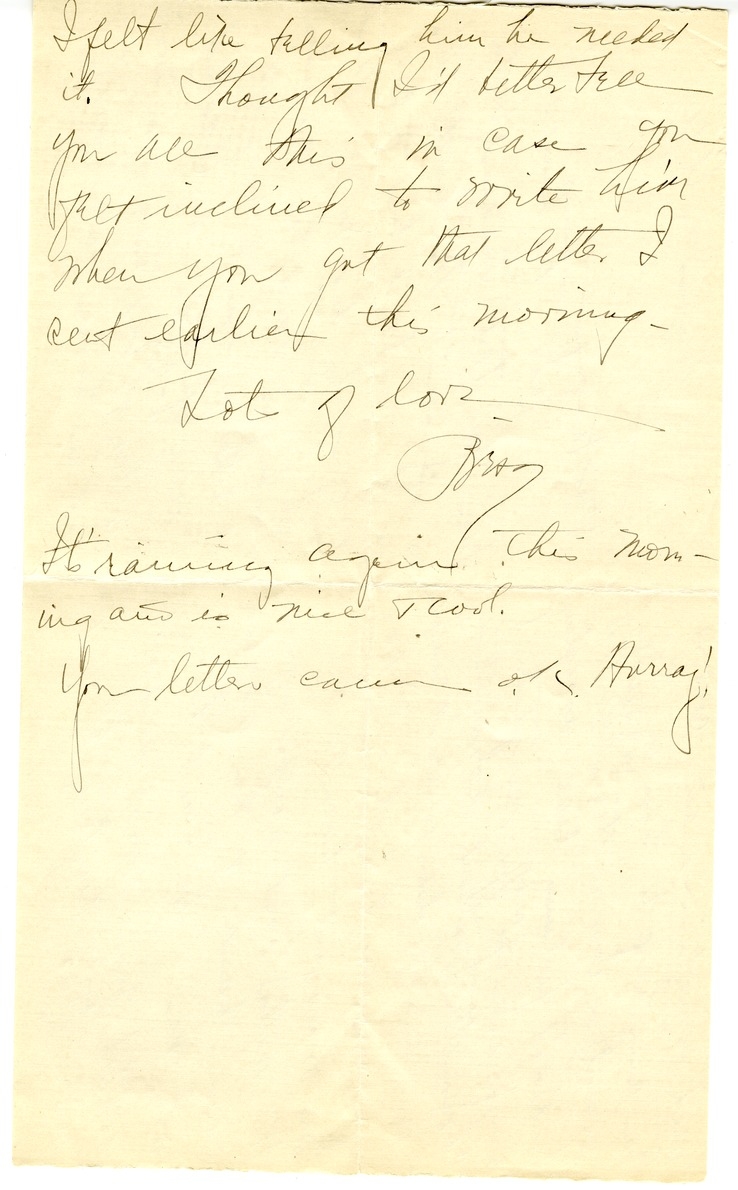 I felt like telling him he needed
it. Thought I'd better tell
you all this in case you
felt inclined to write him
when you got that letter I
cent earlier this morning -
Lots of love
It's raining again this morn-
ing and is nice & cool.
Your letter came o.k. Hurray!